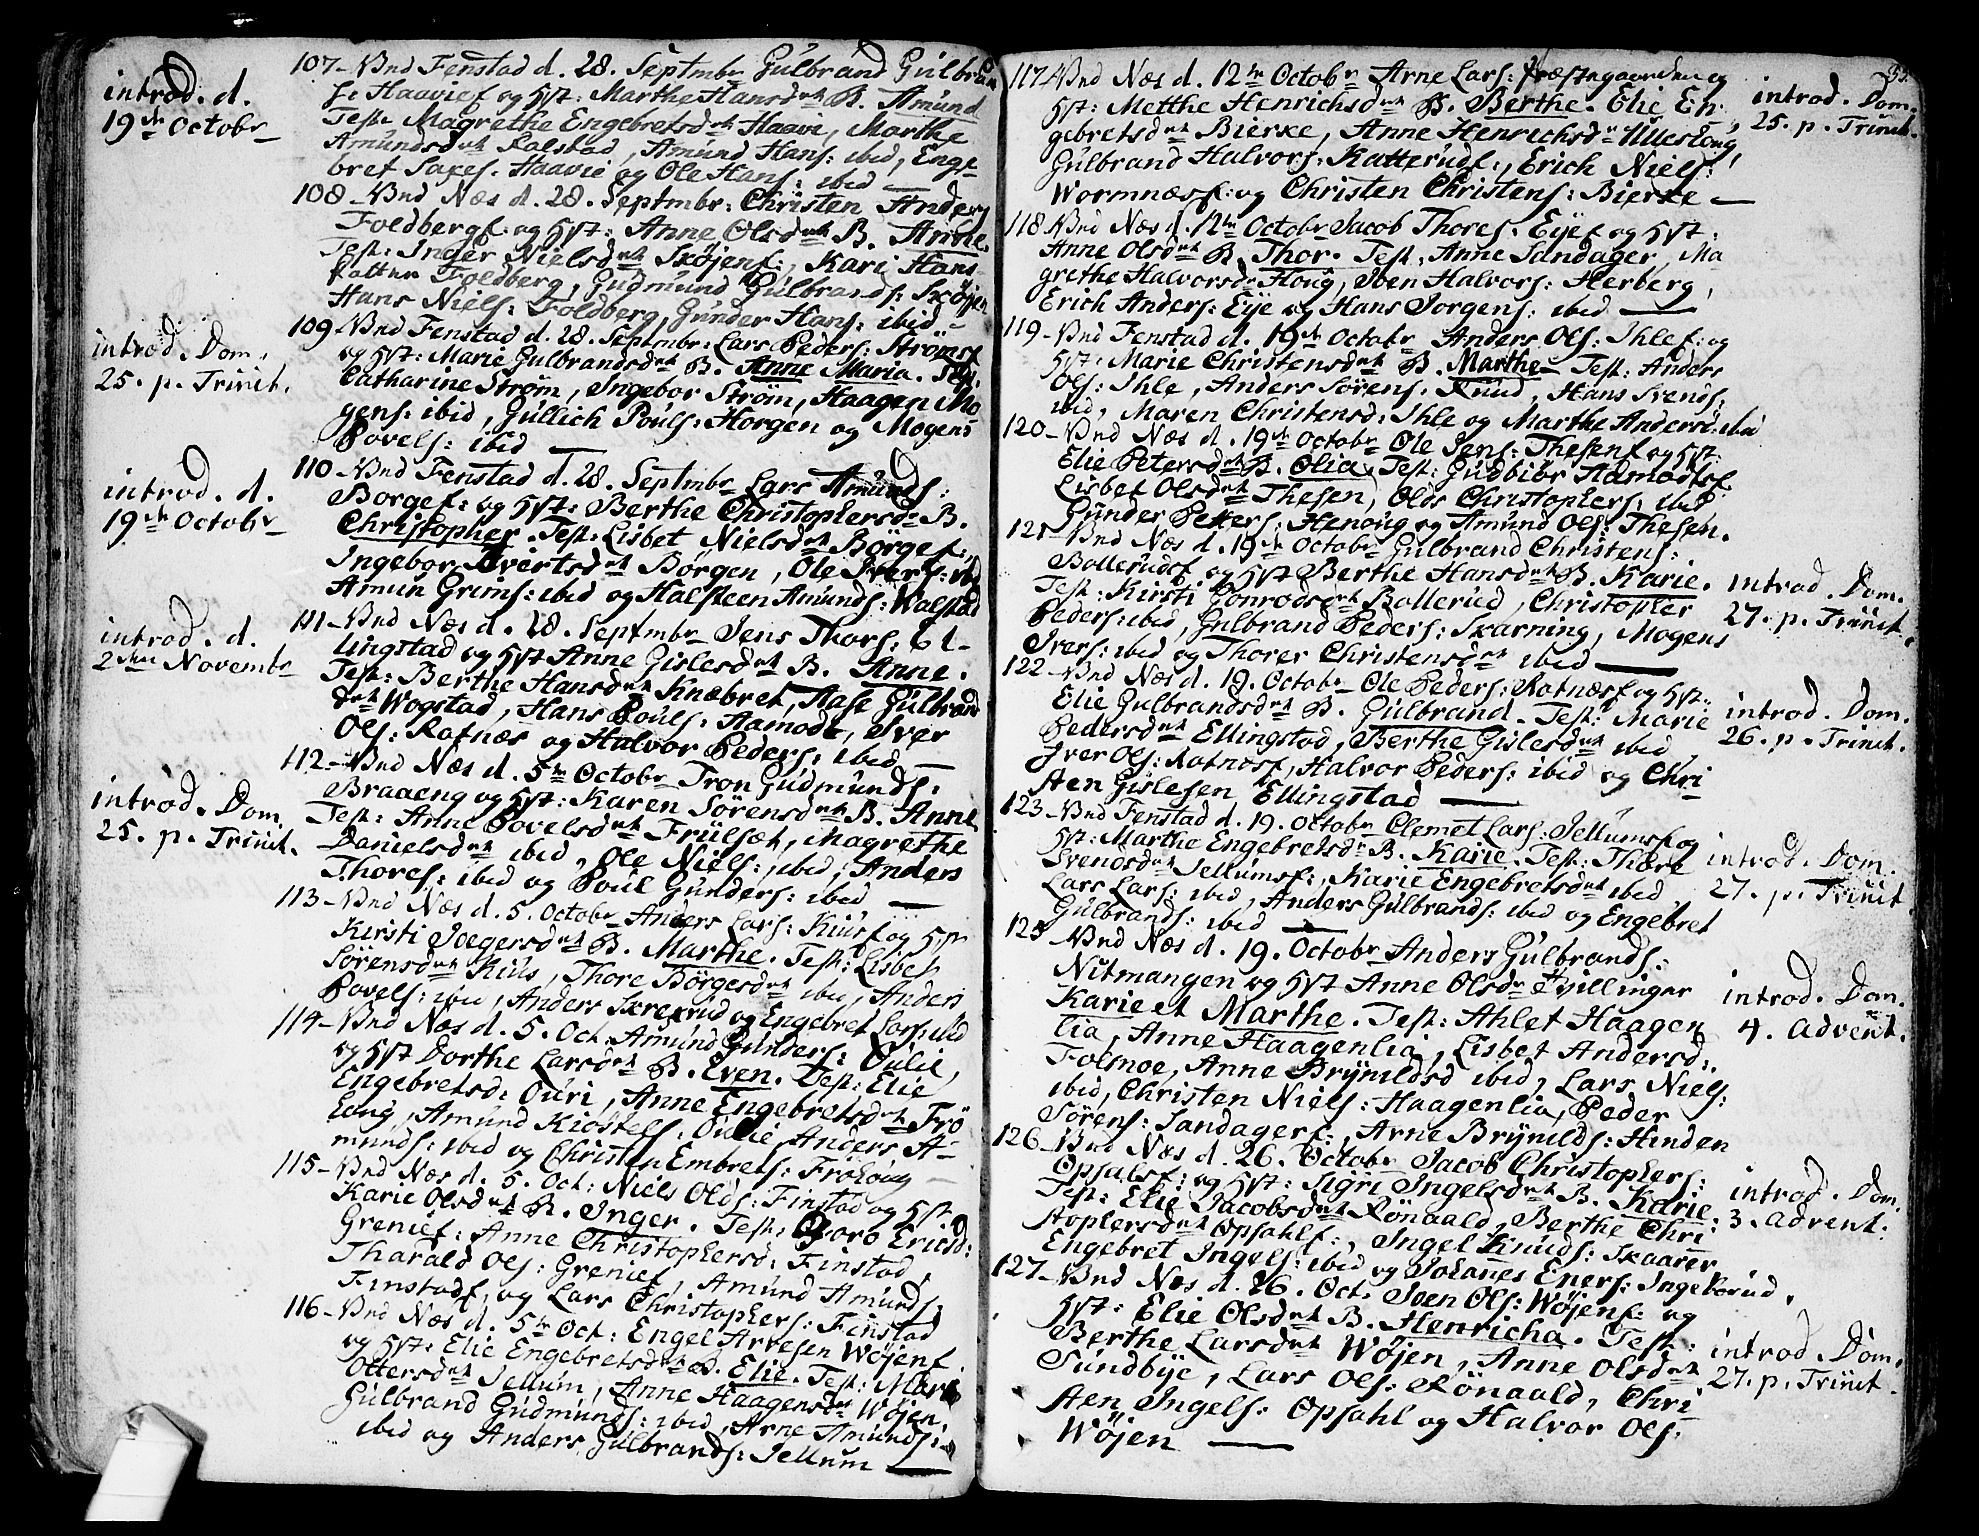 introd. d.
19de Octobr
107 - Und Fenstad d. 28. Septmbr Gulbrand Gulbran
Haavies og Hst: Marthe Hansdatt B. Amund
Test: Magrethe Engebretsdatt Haavi, Marthe
Amundsdatt Folstad, Amund Hans: ibid, Enge-
bret Haavie og Ole Hans: ibid
108 - Und Næs d. 28. Septmbr: Christen Anders
Foldberg: og Hst: Anne Olsdatt B. Anne.
Test: Inger Nielsdatt Skøjen, Kari Hans-
Foldberg, Gudmund Gulbrands: Skøjen
Hans Niels: Foldberg, Gunder Hans: ibid -
introd. Dom.
25. p. Trinit.
109 - Und Fenstad d. 28. Septmbr: Lars Peders: Strøms
og Hst: Marie Gulbrandsdatt B. Anne Maria. Test:
Catharine Strøm, Ingebor Strøm, Haagen Mo
gens: ibid, Gullich Pouls: Horgen og Mogens
Povels: ibid
introd. d.
19de Octobr
110 - Und Fenstad d. 28. Septmbr Lars Amunds:
Borge: og Hst: Berthe Christophersdr B.
Christopher. Test: Lisbet Nielsdatt Børge:
Ingebor Evertsdatt Børgen, Ole Ivers: ibid
Amun Grims: ibid og Halsteen Amunds: Walstad
introd. d.
2den Novembr
111 - Und Næs d. 28. Septmbr Jens Thors: El-
lingstad og Hst Anne Gislesdatt B. Anne.
Test: Berthe Hansdatt Knæbret, Aase Gulbrand
datt Wogstad, Hans Pouls: Aamodt, Iver
Ols: Ratnæs og Halvor Peders: ibid
introd. Dom.
25. p. Trinit.
112 - Und Næs d. 5te Octobr Tron Gudmunds:
Braaeng og Hst: Karen Sørensdatt B. Anne
Test: Anne Povelsdatt Frulset, Magrethe
Danielsdatt ibid, Ole Niels: ibid, Anders
Thores: ibid og Poul Gunders: ibid
113 - Und Næs d. 5. Octobr Anders Lars: Kius og Hst
Kirsti Joegersdatt B. Marthe. Test: Lisbeth
Sørensdatt Kius, Thore Børgesdatt ibid, Anders
Povels: ibid, Anders Skrexrud og Engebret Lars: ibid
114 - Und Næs d. 5. Oct. Amund Gunders: Oulie,
og Hst Dorthe Larsdatt B. Even. Test: Elie
Engebretsd: Ouri, Anne Engebretsdatt Frö
Amund Kiøstels: Oulie, Anders A-
munds: ibid og Christen Embrets: Frölaug
115 - Und Næs d. 5. Oct: Niels Ols: Finstad og Hst
Karie Olsdatt B. Inger. Test: Goro Ericsd:
Grenie: Anne Christophersd: Finstad,
Tharald Ols: Grenie, Amund Amunds:
Finstad, og Lars Christophers: Finstad
116 - Und Næs d. 5te Oct: Engel Arvesen Wøjen
og Hst: Elie Engebretsdatt B. Elie. Test: Mari
Ottersdatt Jellum, Anne Haagensdatt Wøjen,
Gulbrand Gudmunds: ibid, Arne Amunds:
ibid og Anders Gulbrands: Jellum
117 Und Næs d. 12te Octobr Arne Lars: Præstegaarden og
Hst: Metthe Henrichsdatt B. Berthe. Elie En-
gebretsdatt Bierke, Anne Henrichsdr Ullestoug,
Gulbrand Halvors: Katterud:, Erich Niels:
Wormnæs: og Christen Christens: Bierke
introd. Dom.
25. p. Trinit.
118 Und Næs d. 12te Octobr Jacob Thores. Eye: og Hst:
Anne Olsdatt B. Thor. Test: Anne Sandager, Ma
grethe Halvorsdr Houg, Iven Halvors: Herberg,
Erich Anders: Eye og Hans Jorgens: ibid
119 - Und Fenstad d. 19de Octobr Anders Ols: Ihle: og
Hst: Marie Christensdatt B. Marthe - Test: Anders
Ols: Ihle, Anders Sørens: Knud, Hans Svends:
ibid, Maren Christensd: Ihle og Marthe Andersd: ibid
120 - Und Næs d. 19de Octobr Ole Jens: Thesen og Hst:
Elie Petersdatt B. Olia, Test: Gudbiør Aamodt
Lisbet Olsdatt Thesen, Ols Christophers: ibid
Gunder Petters: Henoug og Amund Ols: Thesen.
121 - Und Næs d. 19de Octobr Gulbrand Christens:
Bollerud og Hst Berthe Hansdatt B. Karie.
Test: Kirsti Conrodsdatt Bollerud, Christopher
Peders: ibid, Gulbrand Peders: Skarning, Mogens
Ivers: ibid og Thorer Christensdatt ibid
introd. Dom.
27. p. Trinit.
122 - Und Næs d. 19. Octobr Ole Peders: Ratnæs og Hst:
Elie Gulbrandsdatt B. Gulbrand. Test: Marie
Pedersdatt Ellingstad, Berthe Gislesdatt ibid
Iver Ols: Ratnæs, Halvor Peders: ibid og Chri
sten Gislesen Ellingstad
introd. Dom.
26. p. Trinit.
123 - Und Fenstad d. 19. Octobr Clemet Lars: Jellums og
Hst: Marthe Engebretsdr B. Karie. Test: Thore
Svendsdatt Jellums:, Karie Engebretsdatt ibid
Lars Lars: ibid, Anders Gulbrands: ibid og Engebret
Gulbrands: ibid
introd. Dom.
27. p. Trinit.
125 Und Næs d. 19. Octobr Anders Gulbrands:
Nitmangen og Hst Anne Olsdr tvillinger
Karie et Marthe. Test: Ahlet Haagen
lia, Anne Haagenlia, Lisbet Andersd:
Folsnoe, Anne Brynildsd ibid, Lars Niels:
ibid, Christen Niels: Haagenlia, Peder
Sørens: Sandager:, Arne Brynilds: Hinden
introd. Dom.
4. Advent.
126 - Und Næs d. 26. Octobr Jacob Christophers:
Opsals: og Hst: Sigri Ingelsdatt B. Karie:
Test: Elie Jacobsdatt Rönaald, Berthe Chri
stophersdatt Opsahl:, Ingel Knuds: Skaarer
Engebret Ingels: ibid og Johanes Eners: Ingeborud.
introd. Dom.
3. Advent.
127 - Und Næs d. 26. Oct. Iven Ols: Wøjens: og
Hst: Elie Olsdatt B. Henricha. Test:
Berthe Larsdatt Wøjen, Anne Olsdatt
Sundbye, Lars Ols: Rönaald, Chri
sten Ingels: Opsahl og Halvor Ols:
Wøjen
introd. Dom.
27. p. Trinit.